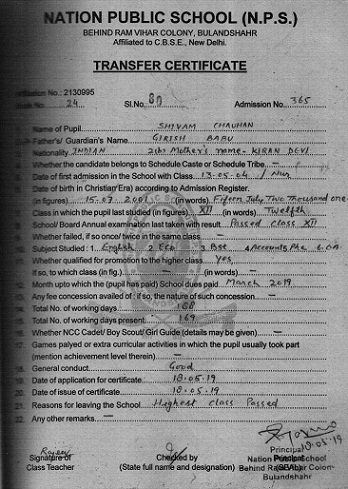 NATION PUBLIC SCHOOL (N.P.S.)
BEHIND RAM VIHAR COLONY, BULANDSHAHR
Affiliated to C.B.S.E., New Delhi.
TRANSFER CERTIFICATE
No.: 2130995
No. 24 Sl.No. 89 Admission No. 365
Name of Pupil SHIVAM CHAUHAN
Father's/ Guardian's Name GIRISH BABU
Nationality INDIAN 2(b) Mother's name- KIRAN DEVI
Whether the candidate belongs to Schedule Caste or Schedule Tribe —
Date of first admission in the School with Class. 13-05-04 / Nur
Date of birth in Christian Era) according to Admission Register.
(in figures) 15.07.2001 (in words) Fifteen July Two Thousand one
Class in which the pupil last studied (in figures) XII (in words) Twelfth
School/ Board Annual examination last taken with result Passed class XII
Whether failed, if so once/ twice in the same class
10 Subject Studied : 1. English 2. Eco 3. Bse 4. Accounts, Phe
Whether qualified for promotion to the higher class Yes,
If so, to which class (in fig.) — (in words) —
12 Month upto which the (pupil has paid) School dues paid March 2019
13. Any fee concession availed of : if so, the nature of such concession —
14. Total No. of working days 188
15. Total No. of working days present 169
16. Whether NCC Cadet/ Boy Scout/ Girl Guide (details may be given) —
17. Games palyed or extra curricular activities in which the pupil usually took part
(mention achievement level therein) —
18 General conduct Good
19. Date of application for certificate 18-05-19
20. Date of issue of certificate 18.05.19
21. Reasons for leaving the School Highest class Passed
22. Any other remarks. —
18-05-19
Signature of Checked by Principal
Class Teacher (State full name and designation) Nation Public School
Behind Ram Vihar Colony
Bulandshahr